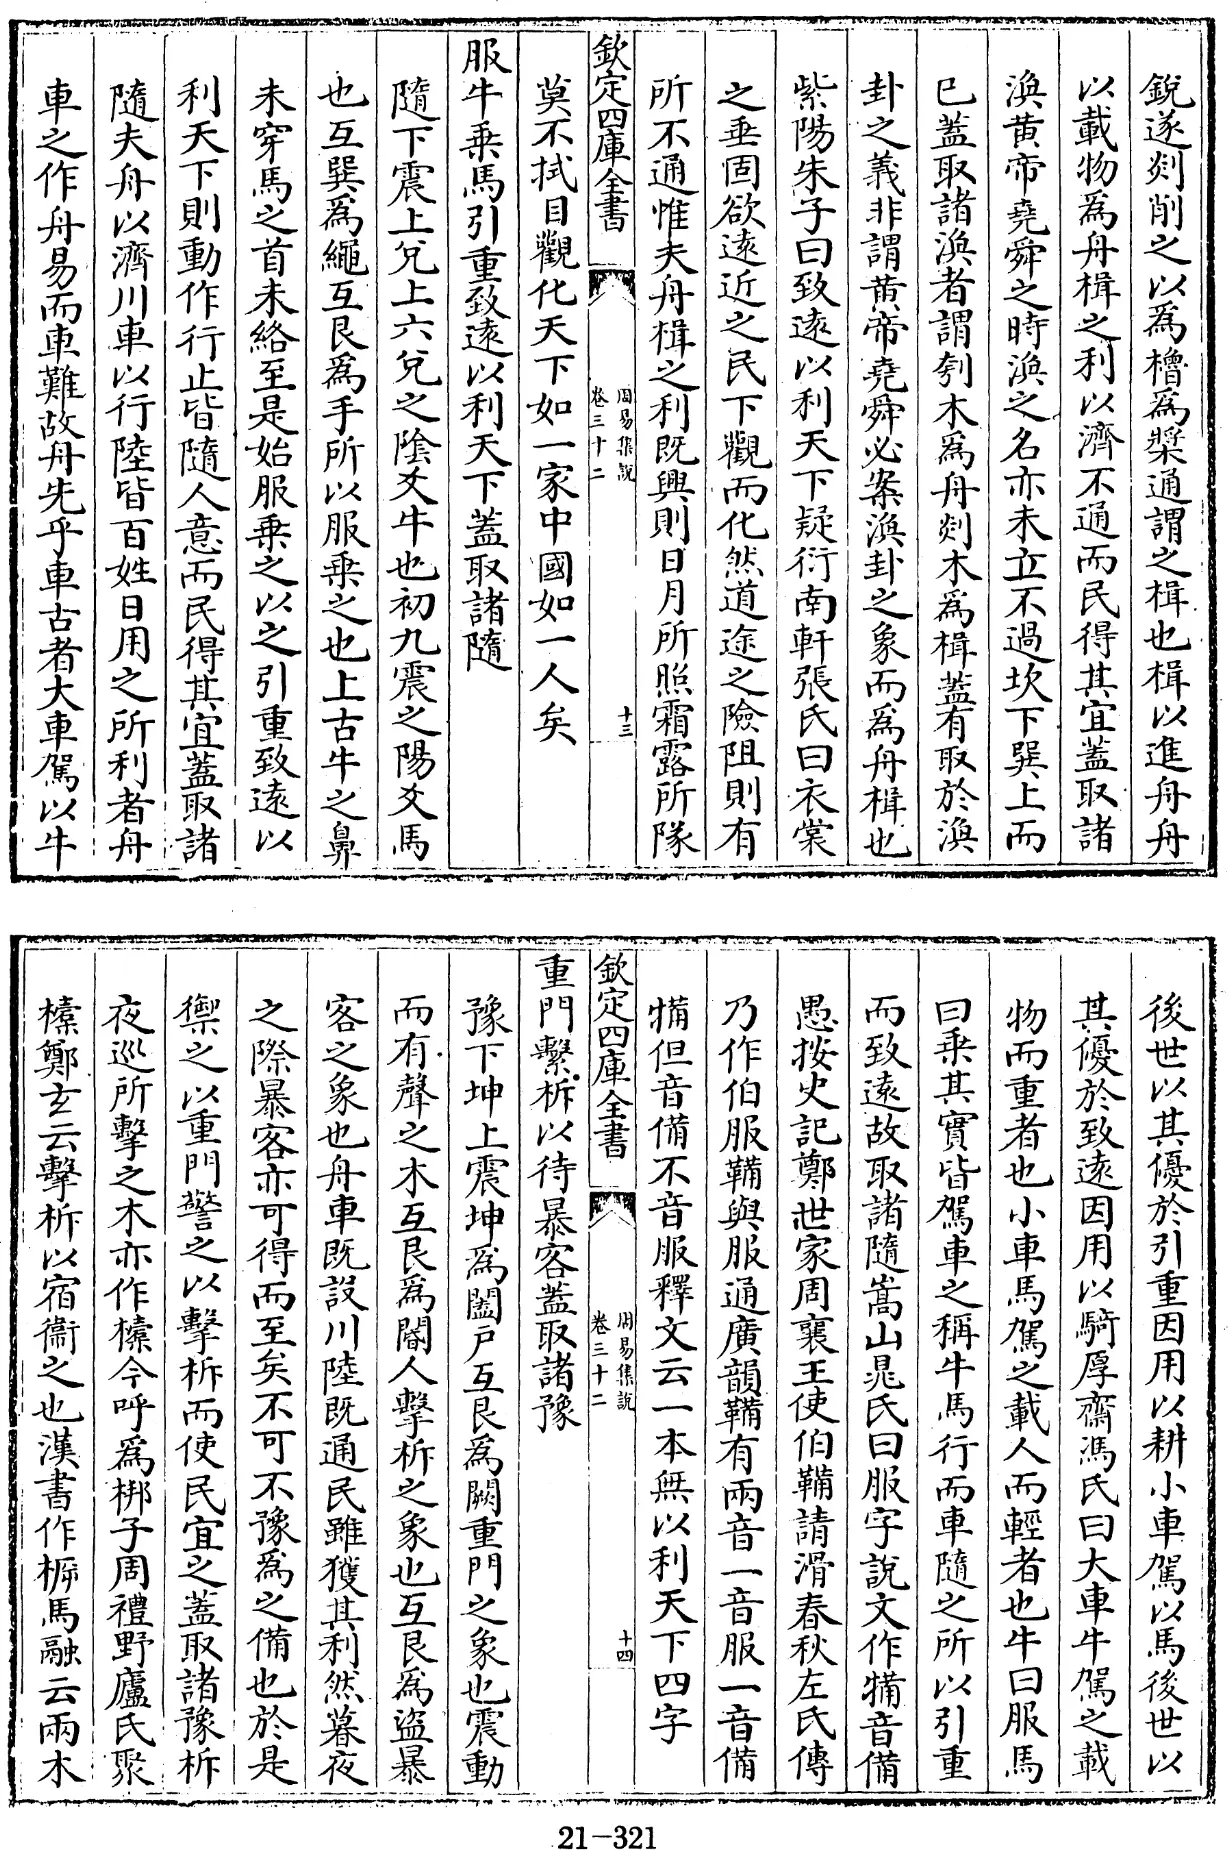 銳遂剡削之以為櫓爲槳通謂之楫也楫以進舟舟
以載物為舟楫之利以濟不通而民得其宜蓋取諸
渙黄帝堯舜之時渙之名亦未立不過坎下巽上而
已蓋取諸渙者謂刳木爲舟剡木爲楫蓋有取於渙
卦之義非謂黄帝堯舜必案渙卦之象而爲舟楫也
紫陽朱子曰致遠以利天下疑衍南軒張氏曰衣裳
之垂固欲遠近之民下觀而化然道途之險阻則有
所不通惟夫舟楫之利既興則日月所照霜露所隊
欽定四庫全書
周易集說
卷三十二
十三
莫不拭目觀化天下如一家中國如一人矣
服牛乗馬引重致遠以利天下蓋取諸隨
隨下震上兊上六兊之陰爻牛也初九震之陽爻馬
也互巽爲繩互艮爲手所以服乗之也上古牛之鼻
未穿馬之首未絡至是始服乗之以之引重致遠以
利天下則動作行止皆隨人意而民得其宜蓋取諸
隨夫舟以濟川車以行陸皆百姓日用之所利者舟
車之作舟易而車難故舟先乎車古者大車駕以牛
後世以其優於引重因用以耕小車駕以馬後世以
其優於致遠因用以騎厚齋馮氏曰大車牛駕之載
物而重者也小車馬駕之載人而輕者也牛曰服馬
曰乗其實皆駕車之稱牛馬行而車隨之所以引重
而致遠故取諸隨嵩山晁氏曰服字說文作犕音備
愚按史記鄭世家周襄王使伯犕請滑春秋左氏傳
乃作伯服犕與服通廣韻犕有兩音一音服一音備
犕但音備不音服釋文云一本無以利天下四字
欽定四庫全書
周易集說
卷三十二
十四
重門擊柝以待暴客蓋取諸豫
豫下坤上震坤爲闔戸互艮爲闕重門之象也震動
而有聲之木互艮爲閽人擊柝之象也互艮爲盗暴
客之象也舟車既設川陸既通民雖獲其利然暮夜
之際暴客亦可得而至矣不可不豫爲之備也於是
禦之以重門警之以擊柝而使民宜之蓋取諸豫柝
夜巡所擊之木亦作㯓今呼爲梆子周禮野廬氏聚
㯓鄭玄云擊柝以宿衞之也漢書作㭼馬融云兩木
21-321